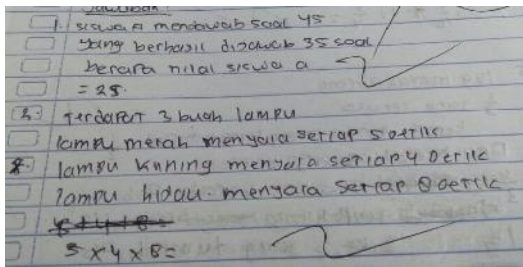 Jawaban
1. siswa A menjawab soal 45
yang berhasil dijawab 35 soal
berapa nilai siswa a
= 25.
2. Terdapat 3 buah lampu
lampu merah menyala setiap 5 detik
lampu kuning menyala setiap 4 detik
lampu hidau. menyala setiap 8 detik.
5+4+8=
5 x 4 x 8 =